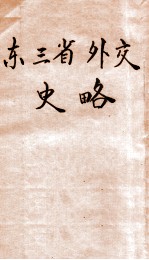 东三省外交
史略